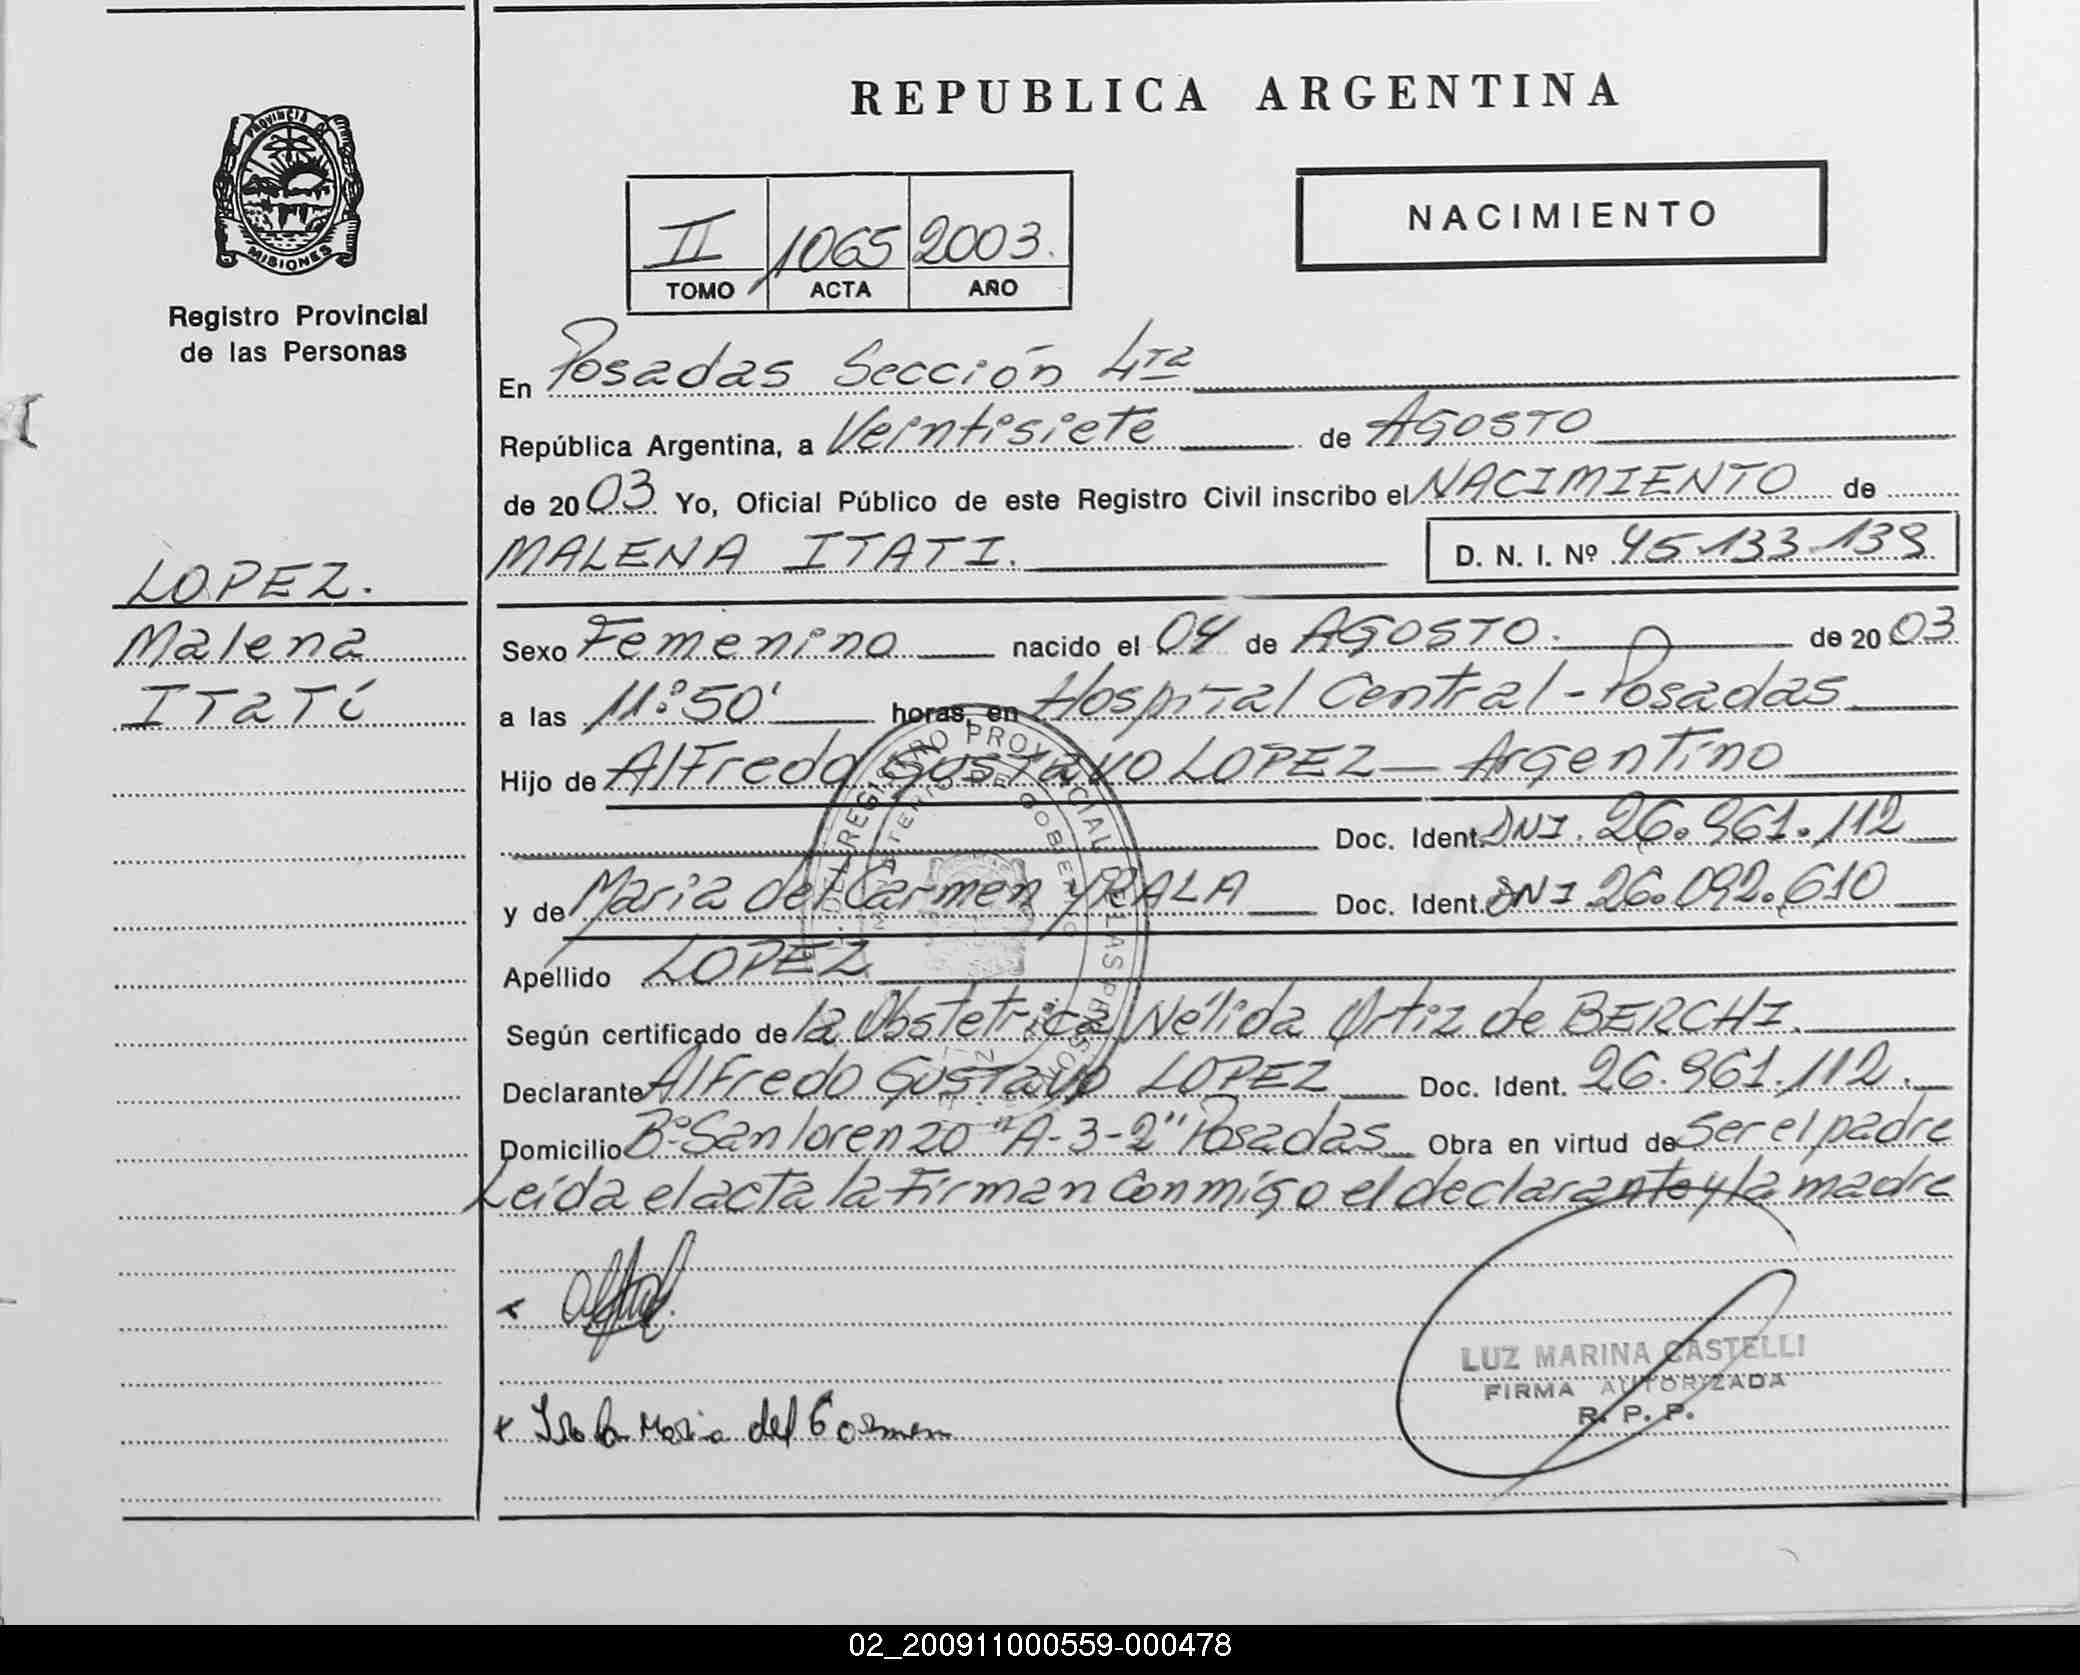 REPUBLICA ARGENTINA
PROVINCIA DE
MISIONES
Registro Provincial
de las Personas
II 1065 2003.
TOMO ACTA AÑO
NACIMIENTO
En Posadas Sección 4ta
República Argentina, a Veintisiete de AGOSTO
de 2003 Yo, Oficial Público de este Registro Civil inscribo el NACIMIENTO de
MALENA ITATI. D. N. I. Nº 45.133.139
LOPEZ.
Malena
ITaTí
Sexo Femenino nacido el 04 de AGOSTO. de 2003
a las 11:50' horas, en Hospital Central - Posadas
Hijo de Alfredo Gustavo LOPEZ — Argentino
Doc. Ident. DNI. 26.961.112
y de Maria del Carmen YRALA Doc. Ident. DNI 26.092.610
Apellido LOPEZ
Según certificado de la Obstetrica Nélida Ortiz de BERCHI.
Declarante Alfredo Gustavo LOPEZ Doc. Ident. 26.961.112.
Domicilio Bº San lorenzo "A-3-2" Posadas Obra en virtud de ser el padre
Leída el acta la Firman Conmigo el declarante y la madre
LUZ MARINA CASTELLI
FIRMA AUTORIZADA
R. P. P.
Maria del Carmen
02_200911000559-000478